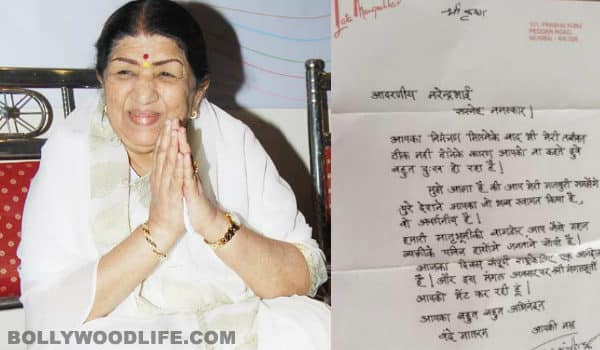 Lata Mangeshkar
श्री कृष्ण
101, PRABHU KUNJ
PEDDER ROAD,
MUMBAI - 400 026
आदरणीय नरेन्द्रभाई
सस्नेह नमस्कार।
आपका निमंत्रण मिलनेके बाद भी मेरी तबीयत
ठीक नहीं होनेके कारण आपको ना कहते हुवे
बहुत दुःख हो रहा है।
मुझे आशा है की आप मेरी मजबुरी समझेंगे
पुरे देशने आपका जो भव्य स्वागत किया है,
वो अवर्णनीय है।
हमारी मातृभूमीकी बागडोर आप जैसे महान
व्यक्तीके पवित्र हाथोंमे जनताने सोंपी है।
आपका एक
है। और इस मंगल अवसरपर श्री
आपकी भेंट कर रही हूं।
आपका बहुत बहुत अभिनंदन
वंदे मातरम आपकी नम्र
BOLLYWOODLIFE.COM